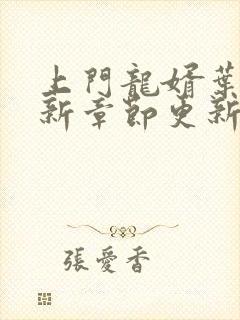 上門龍婿葉
新章節更新
張愛香